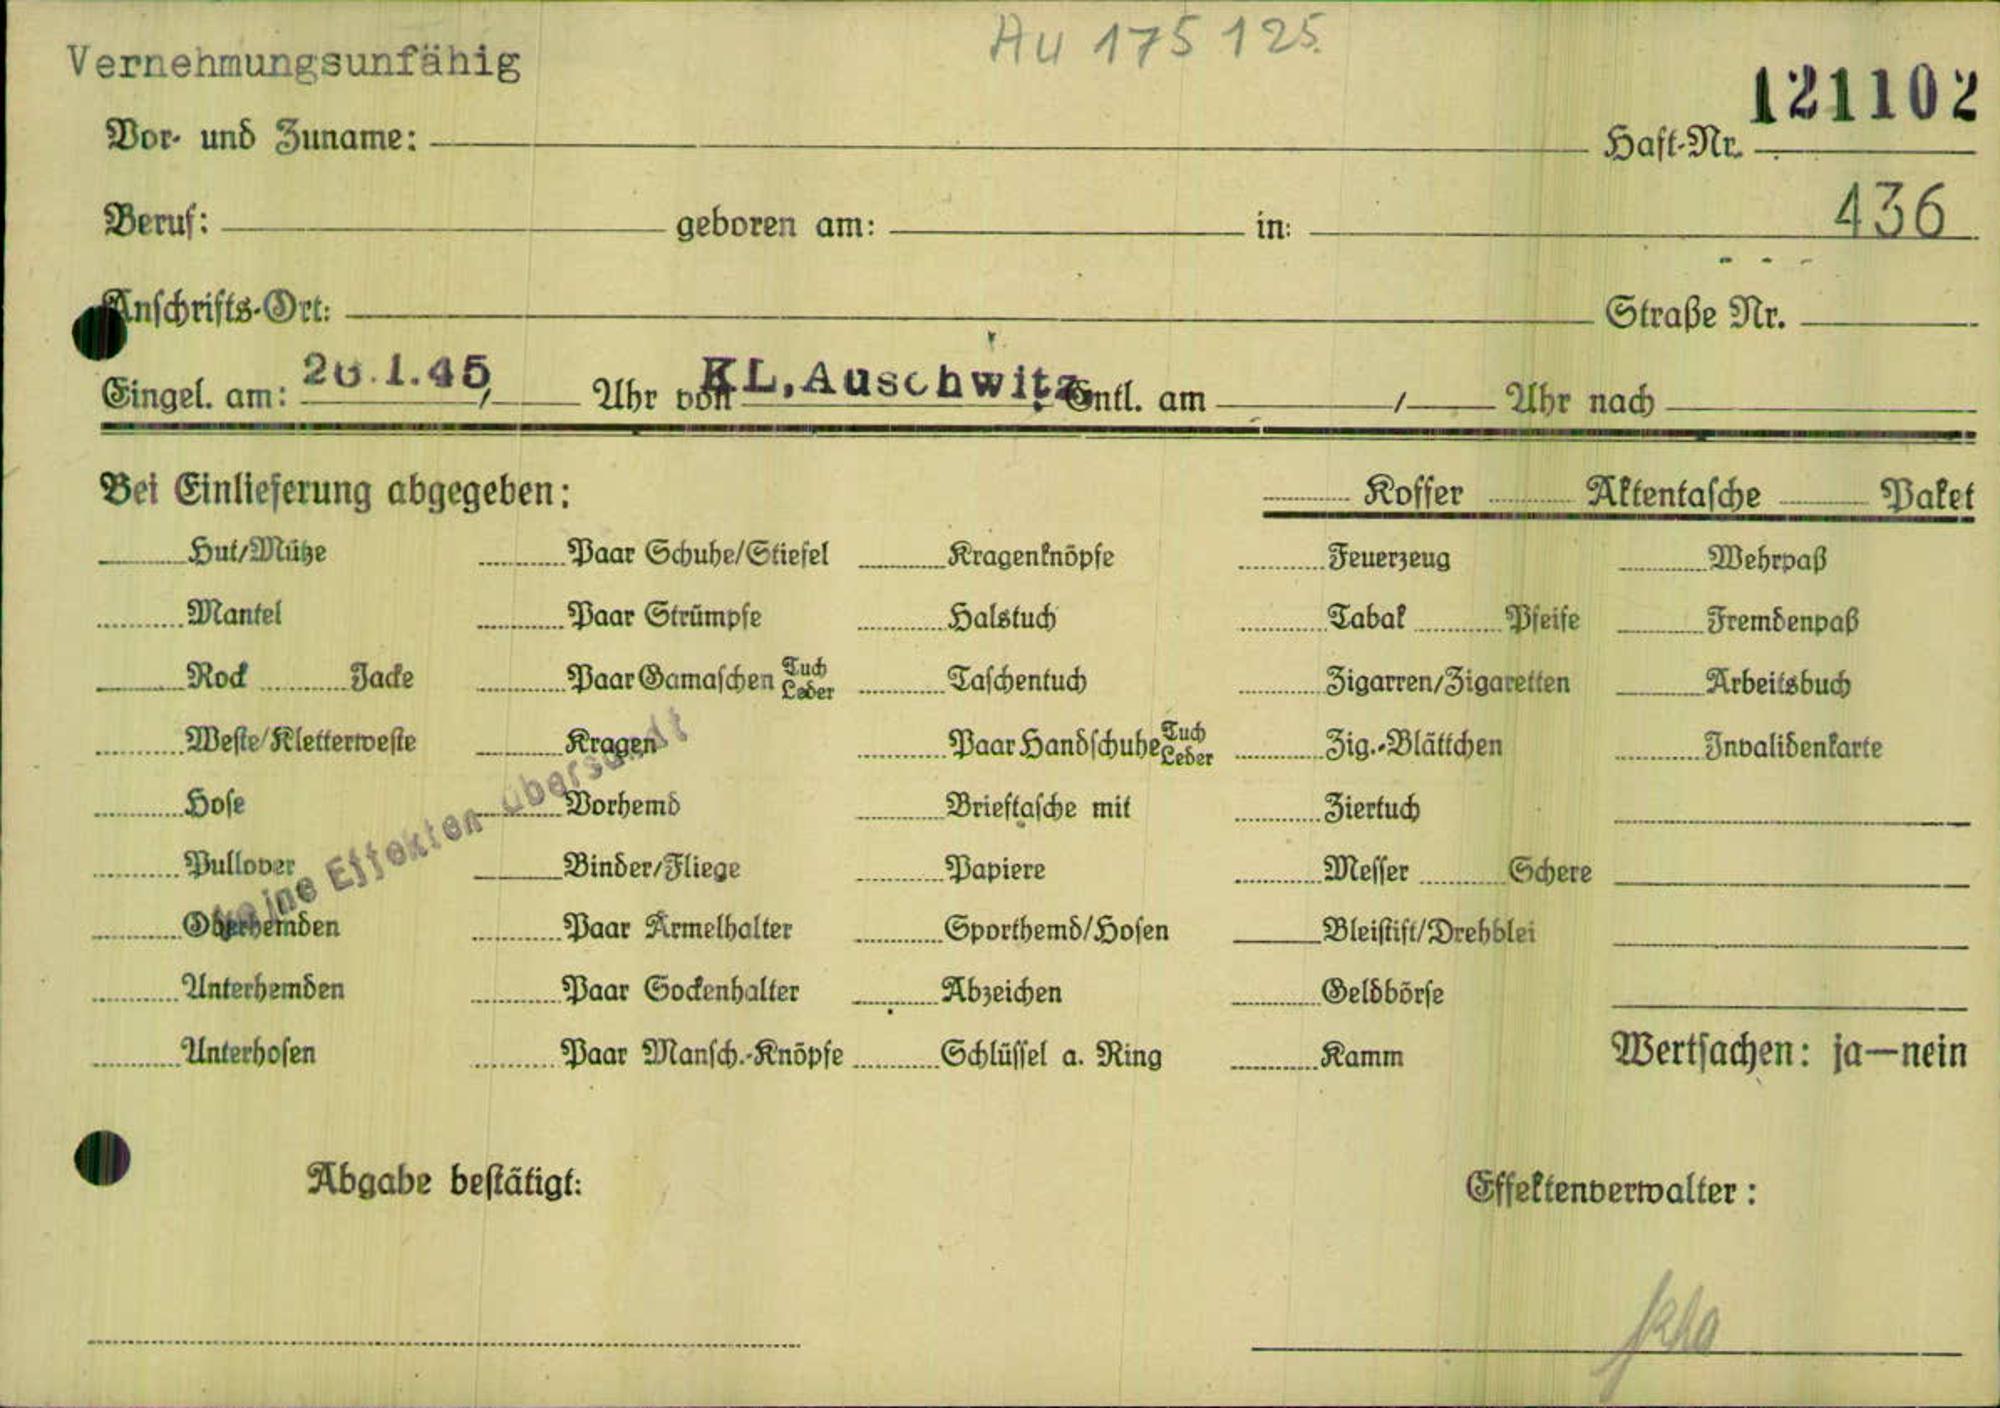 Au 175 125.
Vernehmungsunfähig
121102
Vor- und Zuname: Haft-Nr.
436
Beruf: geboren am: in:
Anschrifts-Ort: Straße Nr.
Eingel. am: 26.1.45 / Uhr von KL, Auschwitz Entl. am / Uhr nach
Bei Einlieferung abgegeben: Koffer Aktentasche Paket
Hut/Mütze Paar Schuhe/Stiefel Kragenknöpfe Feuerzeug Wehrpaß
Mantel Paar Strümpfe Halstuch Tabak Pfeife Fremdenpaß
Rock Jacke Paar Gamaschen Tuch Leder Taschentuch Zigarren/Zigaretten Arbeitsbuch
Weste/Kletterweste Kragen Paar Handschuhe Tuch Leder Zig.-Blättchen Invalidenkarte
Hose Vorhemd Brieftasche mit Ziertuch
Pullover Binder/Fliege Papiere Messer Schere
Keine Effekten übersandt
Oberhemden Paar Ärmelhalter Sporthemd/Hosen Bleistift/Drehblei
Unterhemden Paar Sockenhalter Abzeichen Geldbörse
Unterhosen Paar Mansch.-Knöpfe Schlüssel a. Ring Kamm Wertsachen: ja—nein
Abgabe bestätigt: Effektenverwalter: